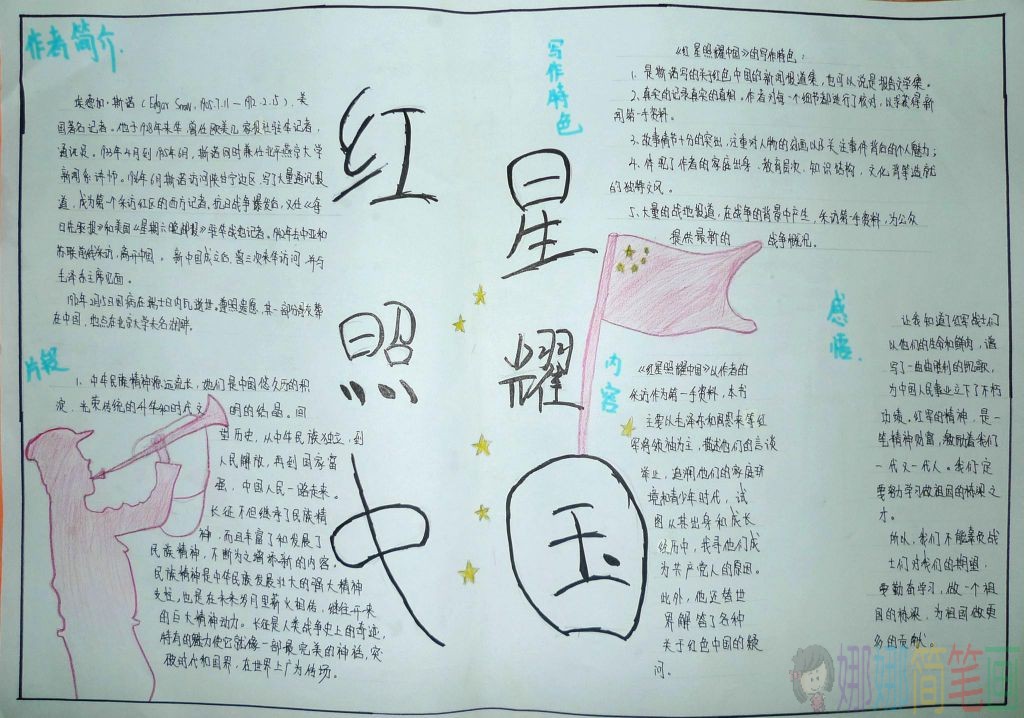 作者简介.
埃德加·斯诺 (Edgar Snow, 1905.7.11—1972.2.15), 美
国著名记者。他于1928年来华, 曾任欧美几家报社驻华记者,
通讯员。1933年4月到1935年6月, 斯诺同时兼任北平燕京大学
新闻系讲师。1936年6月斯诺访问陕甘宁边区, 写了大量通讯报
道, 成为第一个采访红区的西方记者。抗日战争爆发后, 又任《每
日先驱报》和美国《星期六晚邮报》驻华战地记者。1942年去中亚和
苏联前线采访, 离开中国。 新中国成立后, 曾三次来华访问, 并与
毛泽东主席见面。
1972年2月15日因病在瑞士日内瓦逝世。遵照遗愿, 其一部分骨灰葬
在中国, 地点在北京大学未名湖畔。
片段
1. 中华民族精神源远流长, 他们是中国悠久历的积
淀, 光荣传统的升华和时代文 明的结晶。回
望历史, 从中华民族独立, 到
人民解放, 再到国家富
强, 中国人民一路走来。
长征不但继承了民族精
神, 而且丰富了和发展了
民族精神, 不断为之增添新的内容,
民族精神是中华民族发展壮大的强大精神
支柱, 也是在未来岁月里薪火相传, 继往开来
的巨大精神动力。长征是人类战争史上的奇迹,
特有的魅力使它就像一部最完美的神话, 突
破时代和国界, 在世界上广为传扬。
红星照耀中国
写作特色
《红星照耀中国》的写作特色:
1. 是斯诺写的关于红色中国的新闻报道集, 也可以说是报告文学集。
2、真实的记录真实的真相。作者对每一个细节都进行了核对, 以求获得新
闻第一手资料。
3、故事情节十分的突出, 注重对人物的刻画以及关注事件背后的个人魅力;
4. 体现了作者的家庭出身、教育层次、知识结构, 文化背景造就
的独特文风。
5、大量的战地报道, 在战争的背景中产生, 采访第一手资料, 为公众
提供最新的 战争概况。
内容
《红星照耀中国》以作者的
采访作为第一手资料, 本书
主要以毛泽东和周恩来等红
军将领袖为主, 描述他们的言谈
举止, 追溯他们的家庭环
境和青少年时代, 试
图从其出身和成长
经历中, 找寻他们成
为共产党人的原因。
此外, 他还替世
界解答了各种
关于红色中国的疑
问。
感悟.
让我知道了红军战士们
以他们的生命和鲜肉, 谱
写了一曲曲胜利的凯歌,
为中国人民事业立下了不朽
功绩。红军的精神, 是一
笔精神财富, 激励着我们
一代又一代人。我们定
要努力学习做祖国的栋梁之
才。
所以, 我们不能辜负战
士们对我们的期望.
要勤奋学习, 做一个祖
国的栋梁, 为祖国做更
多的贡献。
娜娜简笔画